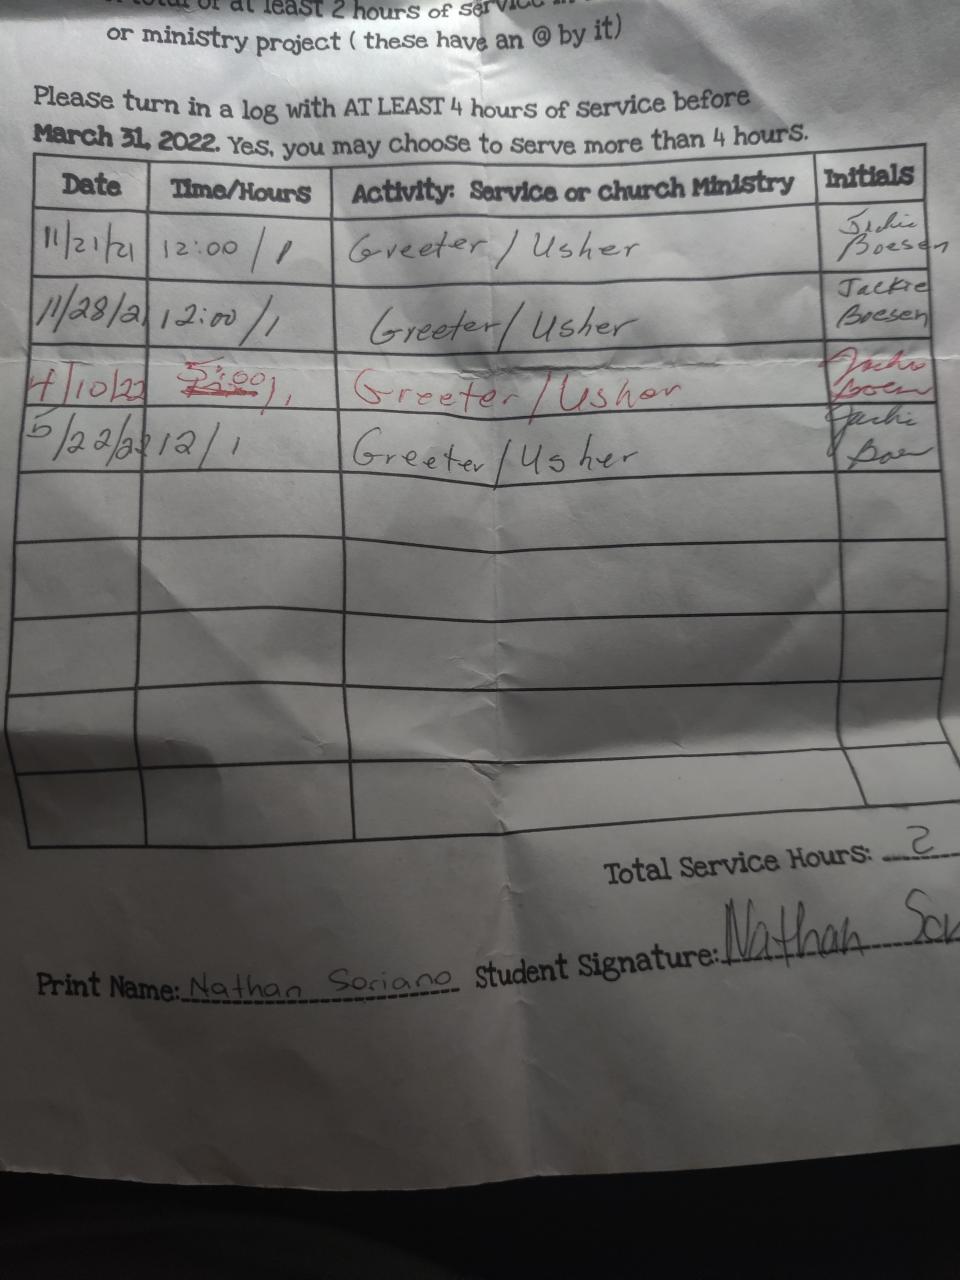 total of at least 2 hours of service in
or ministry project ( these have an @ by it)
Please turn in a log with AT LEAST 4 hours of service before
March 31, 2022. Yes, you may choose to serve more than 4 hours.
Date Time/Hours Activity: Service or church Ministry Initials
11/21/21 12:00 / 1 Greeter / Usher Jackie Boesen
11/28/21 12:00 / 1 Greeter / Usher Jackie Boesen
4/10/22 5:00 / 1 Greeter / Usher
5/22/22 12 / 1 Greeter / Usher
Total Service Hours: 2
Print Name: Nathan Soriano Student Signature: Nathan